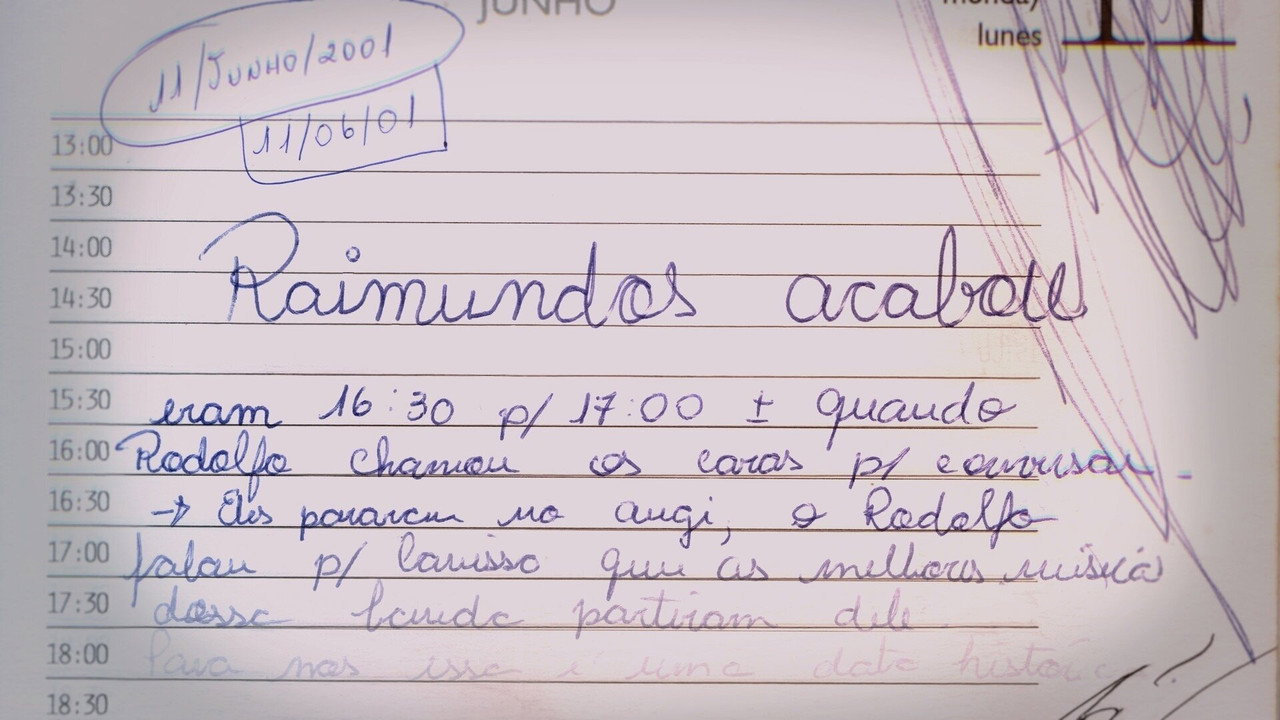 JUNHO
monday
lunes
11
11/JUNHO/2001
11/06/01
13:00
13:30
14:00
Raimundos acabou
14:30
15:00
15:30 eram 16:30 p/ 17:00 ± quando
16:00 Rodolfo chamou os caras p/ conversar
16:30 → Eles pararam no augi, o Rodolfo
17:00 falou p/ que as melhores música
17:30 dessa banda partiram dele
18:00 Para nos isso é uma data
18:30